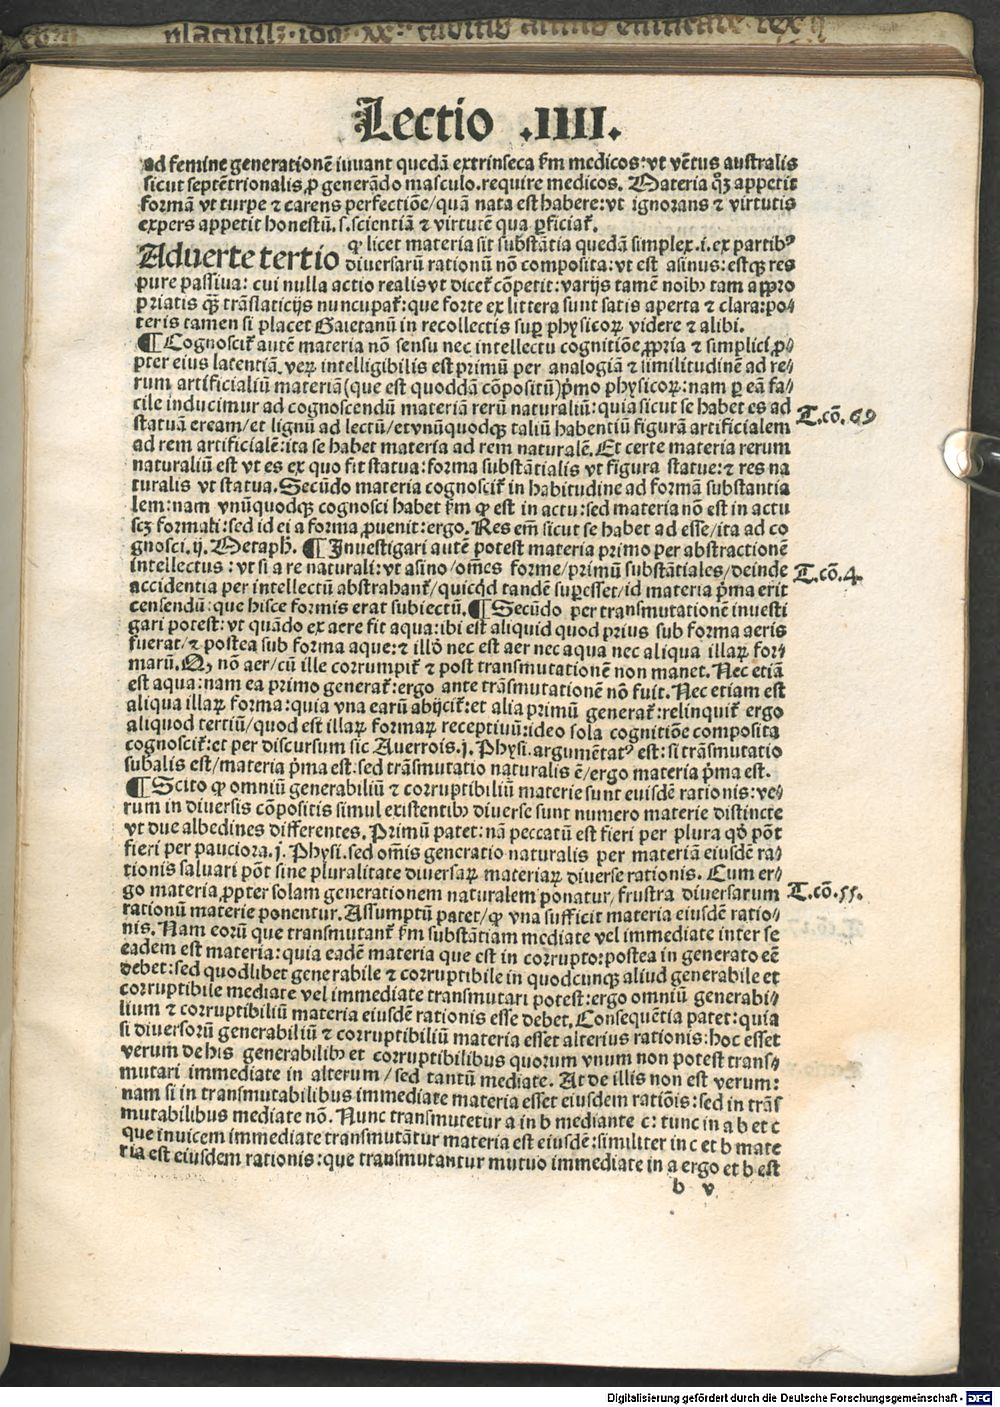 Lectio .IIII.
ad femine generationē iuuant quedā extrinseca ſm medicos: vt vētus australis
sicut septētrionalis, ꝓ generādo masculo. require medicos. Materia qꝫ appetit
formā vt turpe ⁊ carens perfectiōe/ quā nata est habere: vt ignorans ⁊ virtutis
expers appetit honestū. s. scientiā ⁊ virtutē qua ꝑficiat᷑.
Aduerte tertio ꝙ licet materia sit substātia quedā simplex .i. ex partibꝰ
diuersarū rationū nō composita: vt est asinus: estqꝫ res
pure passiua: cui nulla actio realis vt dicet᷑ cōpetit: varijs tamē noībꝫ tam appro
priatis qꝫ̄ trāslaticijs nuncupat᷑: que forte ex littera sunt satis aperta ⁊ clara: po⸗
teris tamen si placet Gaietanū in recollectis suꝑ physicoꝝ videre ⁊ alibi.
¶ Cognoscit᷑ autē materia nō sensu nec intellectu cognitiōe ꝓpria ⁊ simplici ꝓ⸗
pter eius latentiā. veꝝ intelligibilis est primū per analogiā ⁊ similitudinē ad re⸗
rum artificialiū materiā (que est quoddā cōpositū) pͥmo physicoꝝ: nam ꝑ eā fa⸗
cile inducimur ad cognoscendū materiā rerū naturaliū: quia sicut se habet es ad
T. cō. 69
statuā eream/ et lignū ad lectū/ et vnūquodqꝫ taliū habentiū figurā artificialem
ad rem artificialē: ita se habet materia ad rem naturalē. Et certe materia rerum
naturaliū est vt es ex quo fit statua: forma substātialis vt figura statue: ⁊ res na
turalis vt statua. Secūdo materia cognoscit᷑ in habitudine ad formā substantia
lem: nam vnūquodqꝫ cognosci habet ſm ꝙ est in actu: sed materia nō est in actu
scꝫ formali: sed id ei a forma ꝓuenit: ergo. Res em̄ sicut se habet ad esse/ ita ad co
gnosci. ij. Metaph. ¶ Inuestigari autē potest materia primo per abstractionē
intellectus: vt si a re naturali: vt asino/ om̄es forme/ primū substātiales/ deinde
T. cō. 4.
accidentia per intellectū abstrahant᷑/ quicqͥd tandē suꝑesset/ id materia pͥma erit
censendū: que hisce formis erat subiectū. ¶ Secūdo per transmutationē inuesti
gari potest: vt quādo ex aere fit aqua: ibi est aliquid quod prius sub forma aeris
fuerat/ ⁊ postea sub forma aque: ⁊ illð nec est aer nec aqua nec aliqua illaꝝ for⸗
marū. Qꝫ nō aer/ cū ille corrumpit᷑ ⁊ post transmutationē non manet. Nec etiā
est aqua: nam ea primo generat᷑: ergo ante trāsmutationē nō fuit. Nec etiam est
aliqua illaꝝ forma: quia vna earū abijcit᷑: et alia primū generat᷑: relinquit᷑ ergo
aliquod tertiū/ quod est illaꝝ formaꝝ receptiuū: ideo sola cognitiōe composita
cognoscit᷑: et per discursum sic Auerrois. j. Physi. argumētatꝰ est: si trāsmutatio
subalis est/ materia pͥma est: sed trāsmutatio naturalis ē/ ergo materia pͥma est.
¶ Scito ꝙ omniū generabiliū ⁊ corruptibiliū materie sunt euisdē rationis: ve⸗
rum in diuersis cōpositis simul existentibꝫ diuerse sunt numero materie distincte
vt due albedines differentes. Primū patet: nā peccatū est fieri per plura qð pōt
fieri per pauciora. j. Physi. sed om̄is generatio naturalis per materiā eiusdē ra⸗
tionis saluari pōt sine pluralitate diuersaꝝ materiaꝝ diuerse rationis. Cum er⸗
go materia ꝓpter solam generationem naturalem ponatur/ frustra diuersarum
T. cō. 55.
rationū materie ponentur. Assumptū patet/ ꝙ vna sufficit materia eiusdē ratio⸗
nis. Nam eorū que transmutant᷑ ſm substātiam mediate vel immediate inter se
eadem est materia: quia eadē materia que est in corrupto: postea in generato eē
debet: sed quodlibet generabile ⁊ corruptibile in quodcunqꝫ aliud generabile et
corruptibile mediate vel immediate transmutari potest: ergo omniū generabi⸗
lium ⁊ corruptibiliū materia eiusdē rationis esse debet. Consequētia patet: quia
si diuersorū generabiliū ⁊ corruptibiliū materia esset alterius rationis: hoc esset
verum de his generabilibꝫ et corruptibilibus quorum vnum non potest trans⸗
mutari immediate in alterum/ sed tantū mediate. At de illis non est verum:
nam si in transmutabilibus immediate materia esset eiusdem ratiōis: sed in trās
mutabilibus mediate nō. Nunc transmutetur a in b mediante c: tunc in a b et c
que inuicem immediate transmutātur materia est eiusdē: similiter in c et b mate
ria est eiusdem rationis: que transmutantur mutuo immediate in a ergo et b est
b v
Digitalisierung gefördert durch die Deutsche Forschungsgemeinschaft - DFG